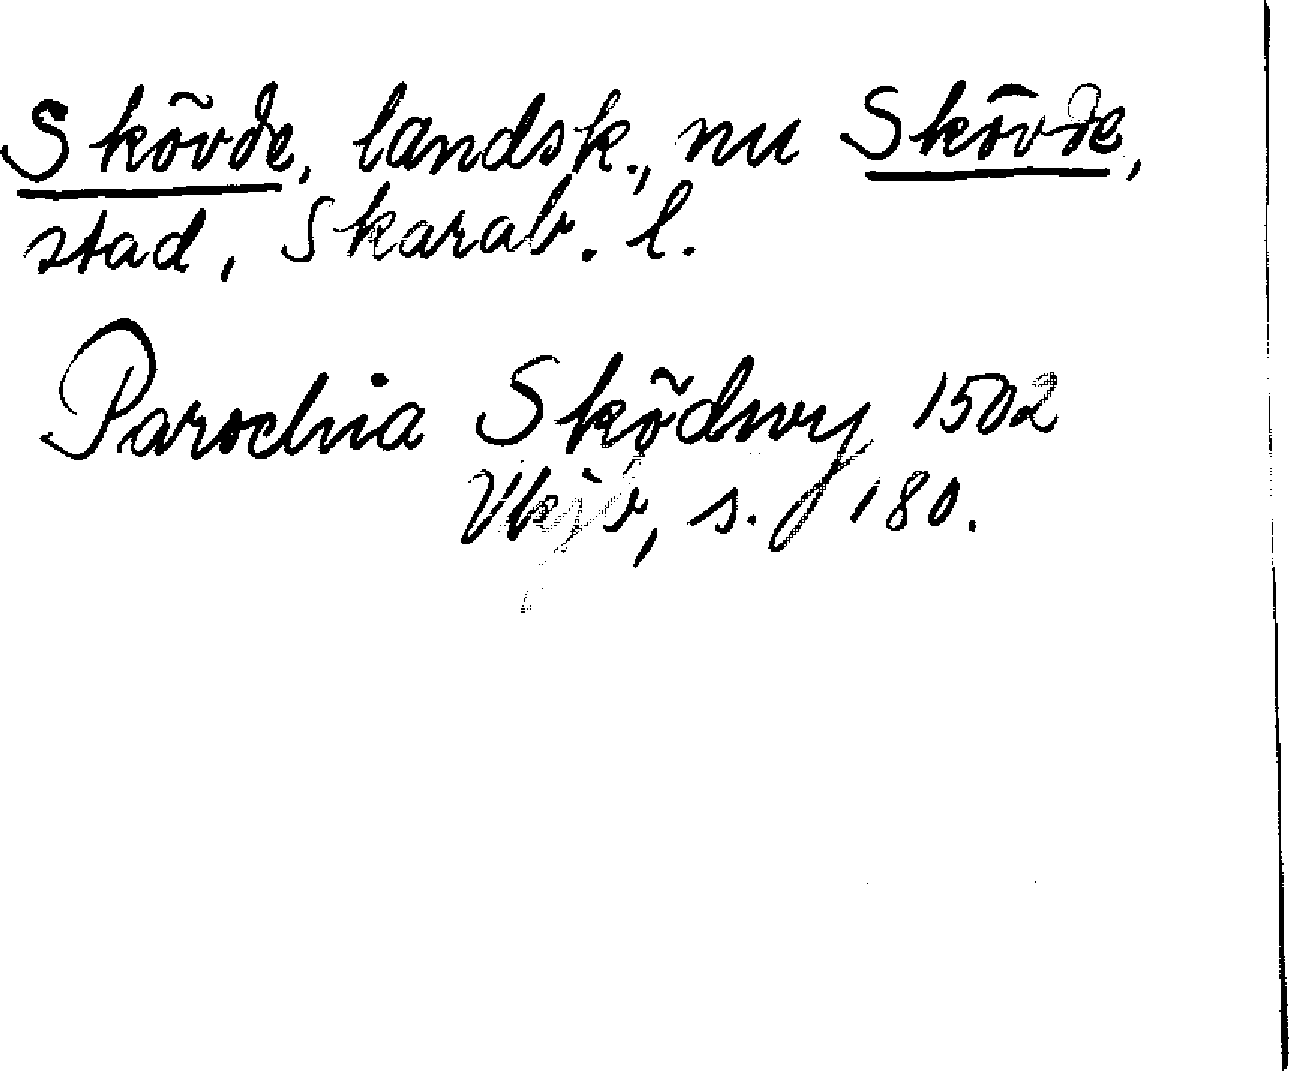 Skövde, landsk., nu Skövde,
stad, Skarab. l.
Parochia Sködwy 1502
Vkjb, s. 180.